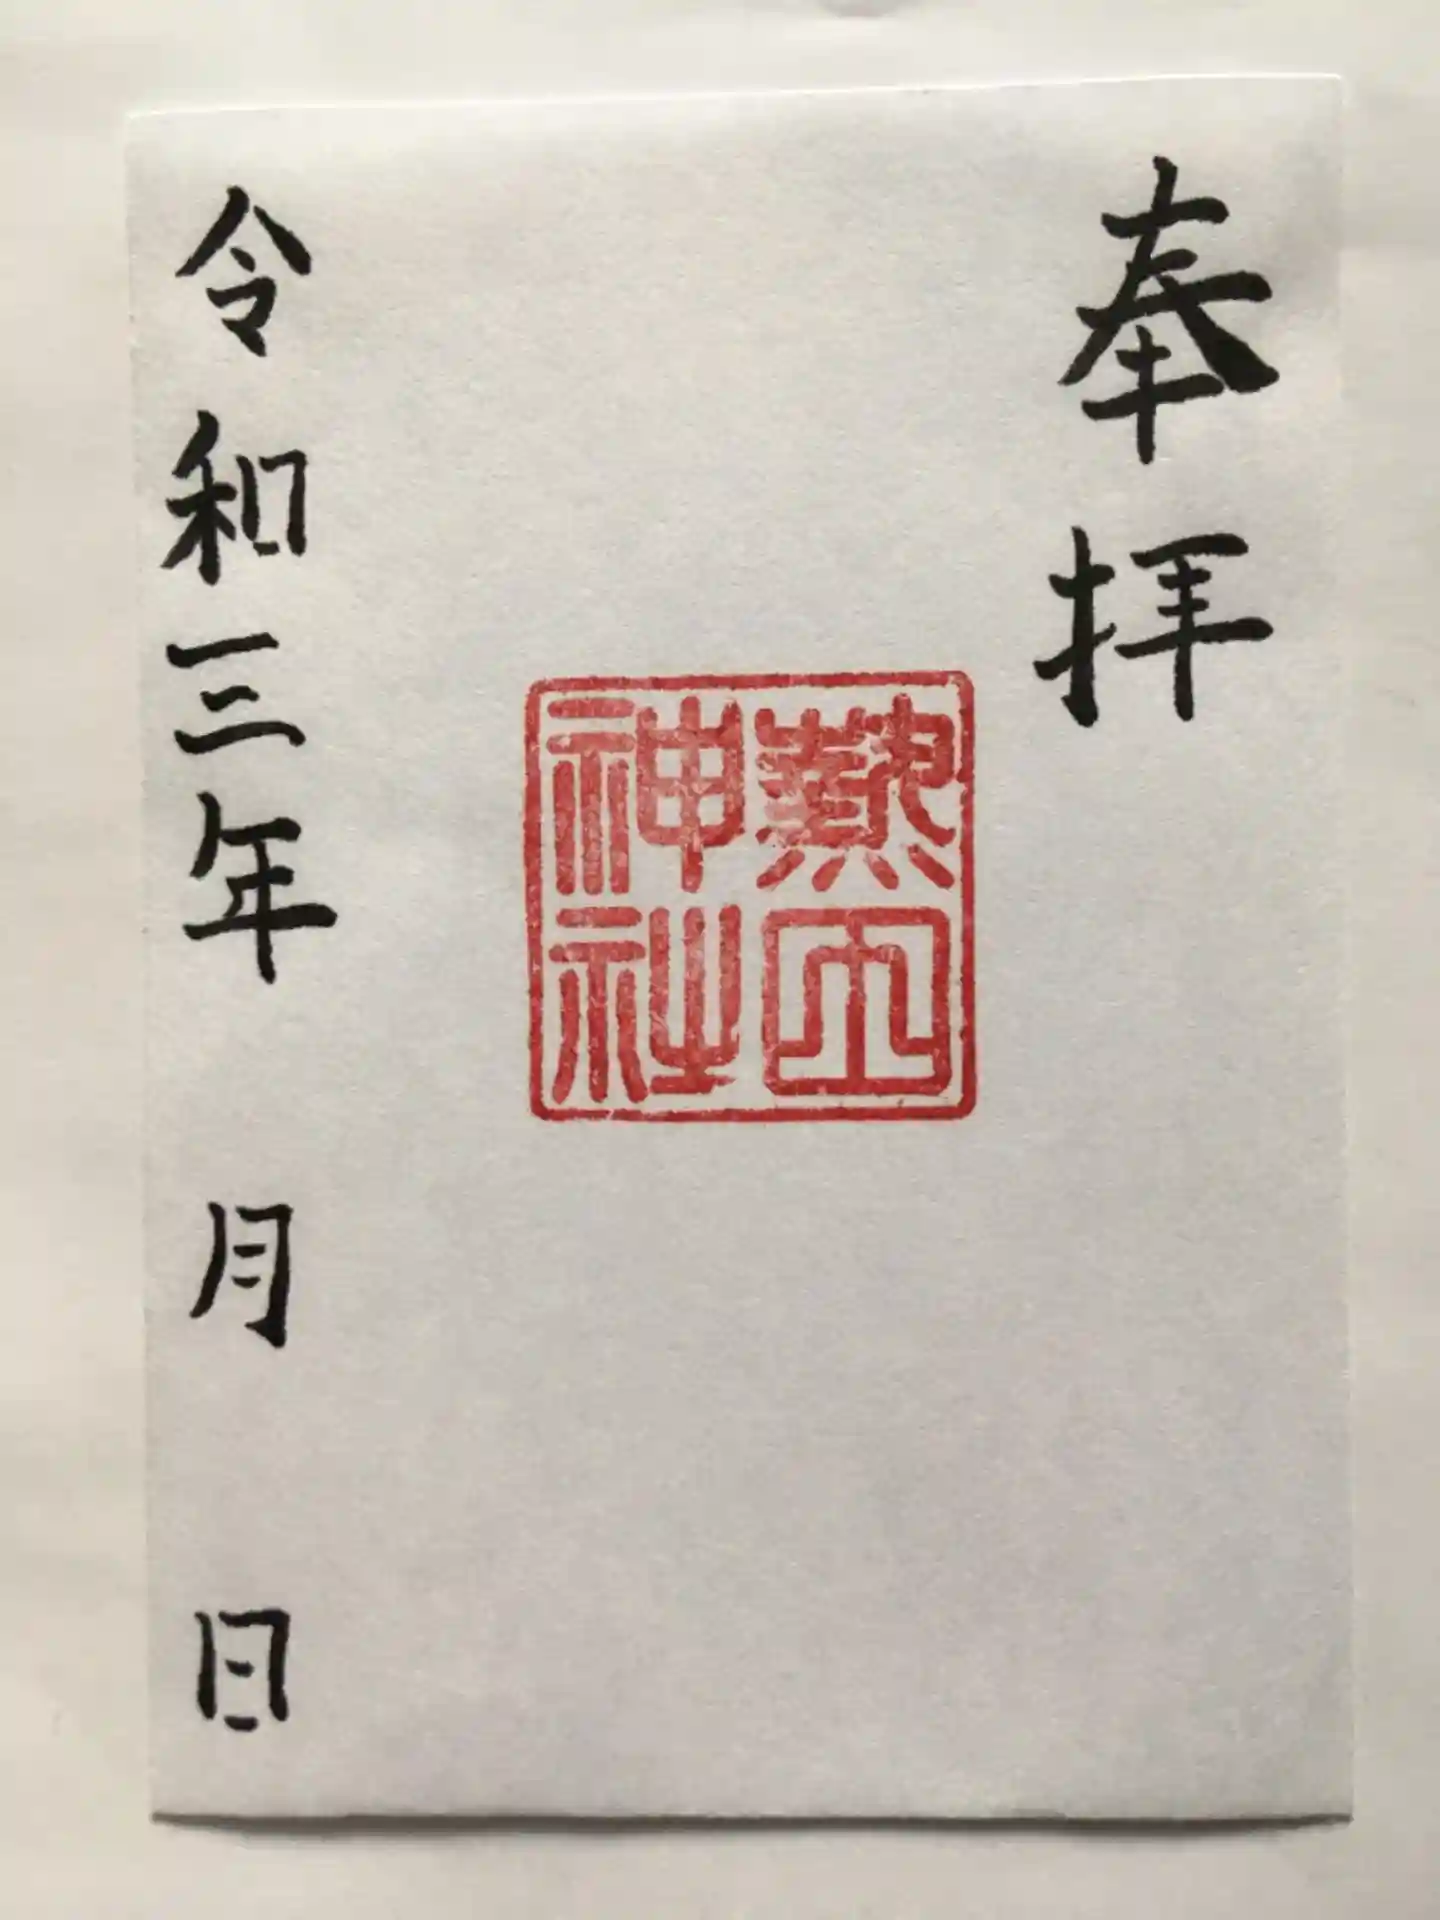 奉拝
神社
令和三年 月 日